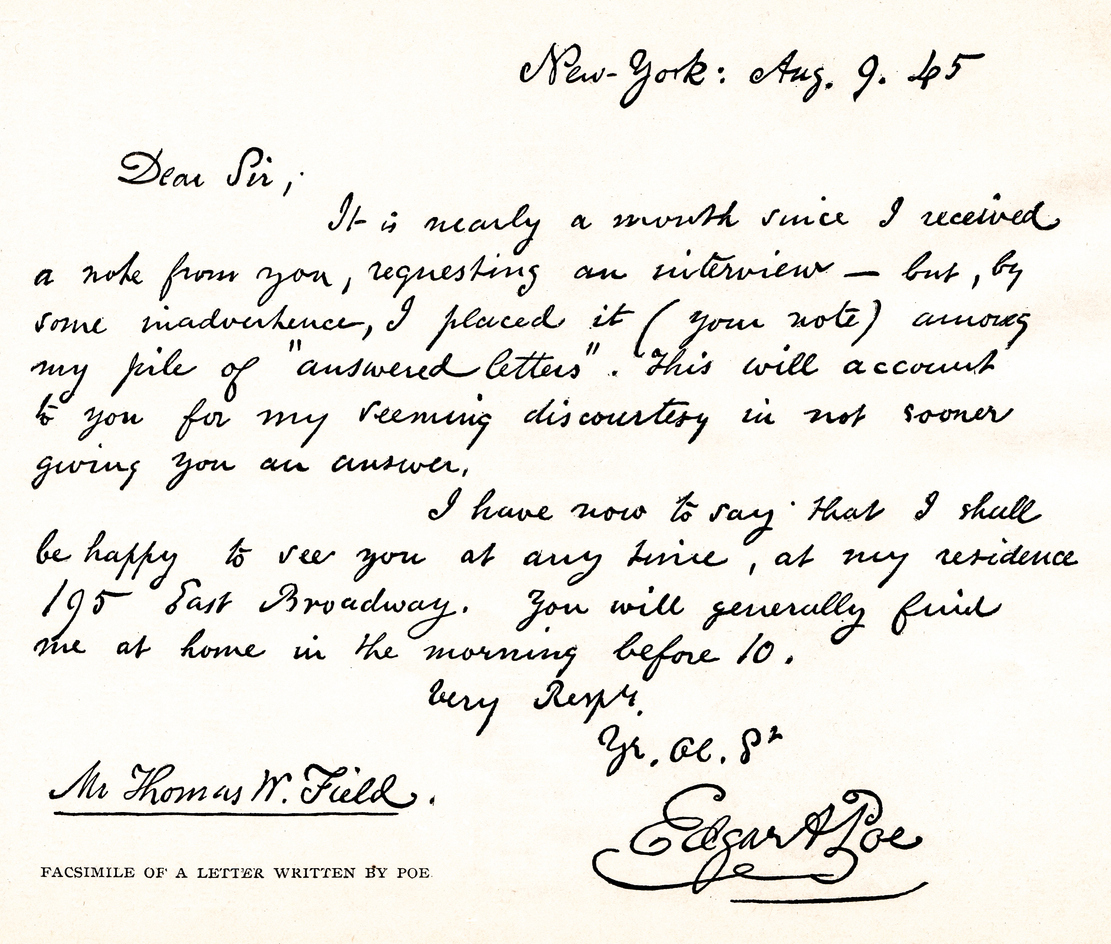 New-York: Aug. 9. 45
Dear Sir;
It is nearly a month since I received
a note from you, requesting an interview — but, by
some inadvertence, I placed it (your note) among
my pile of "answered letters". This will account
to you for my seeming discourtesy in not sooner
giving you an answer.
I have now to say that I shall
be happy to see you at any time, at my residence
195 East Broadway. You will generally find
me at home in the morning before 10.
Very Respy.
Yr. Ob. St
Edgar A Poe
Mr Thomas W. Field.
FACSIMILE OF A LETTER WRITTEN BY POE.